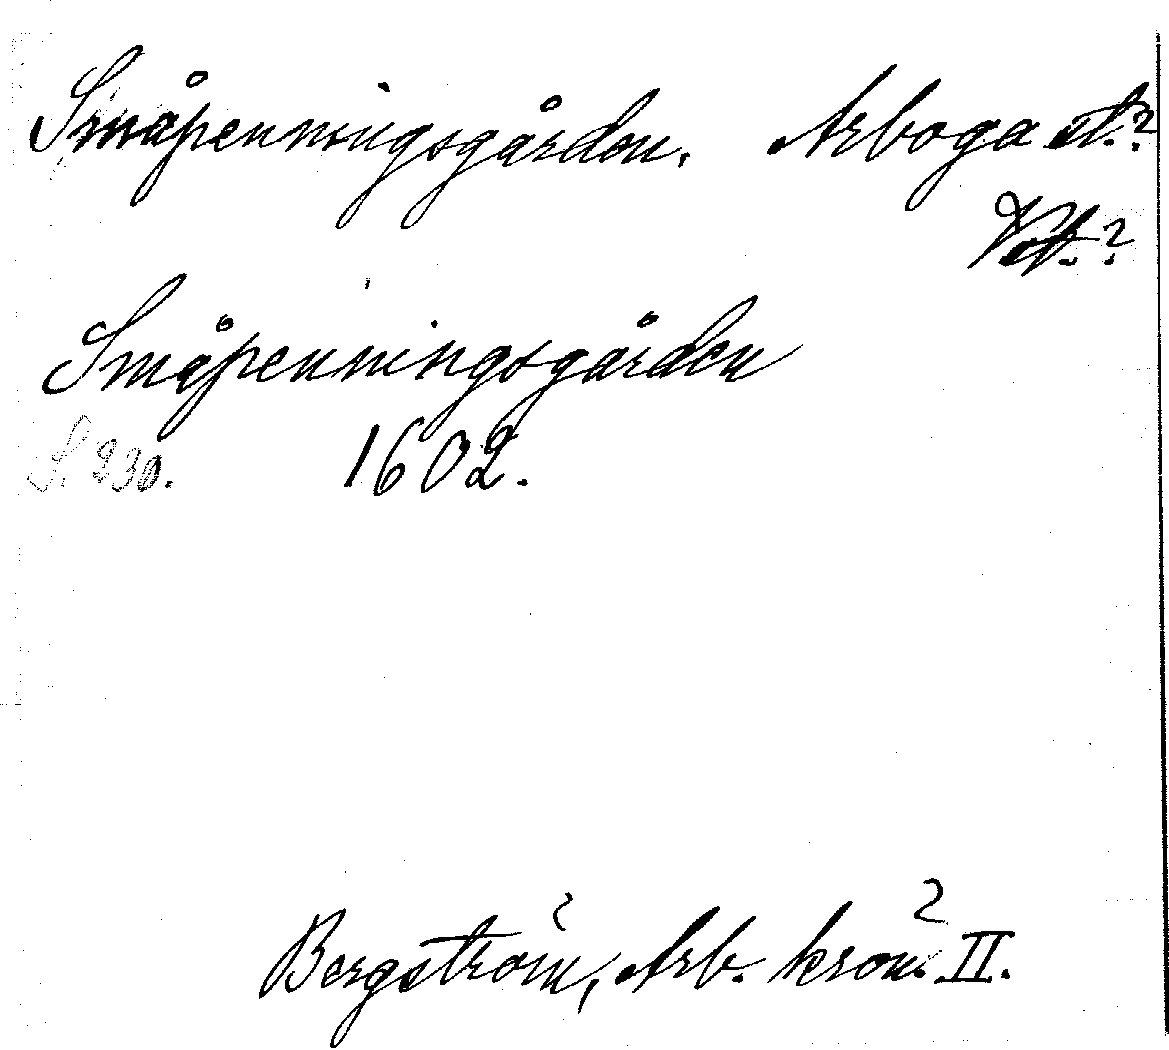 Småpenningsgården. Arboga st.?
Vstm.?
Småpenningsgården
S. 230. 1602.
Bergström, Arb. krön.² II.